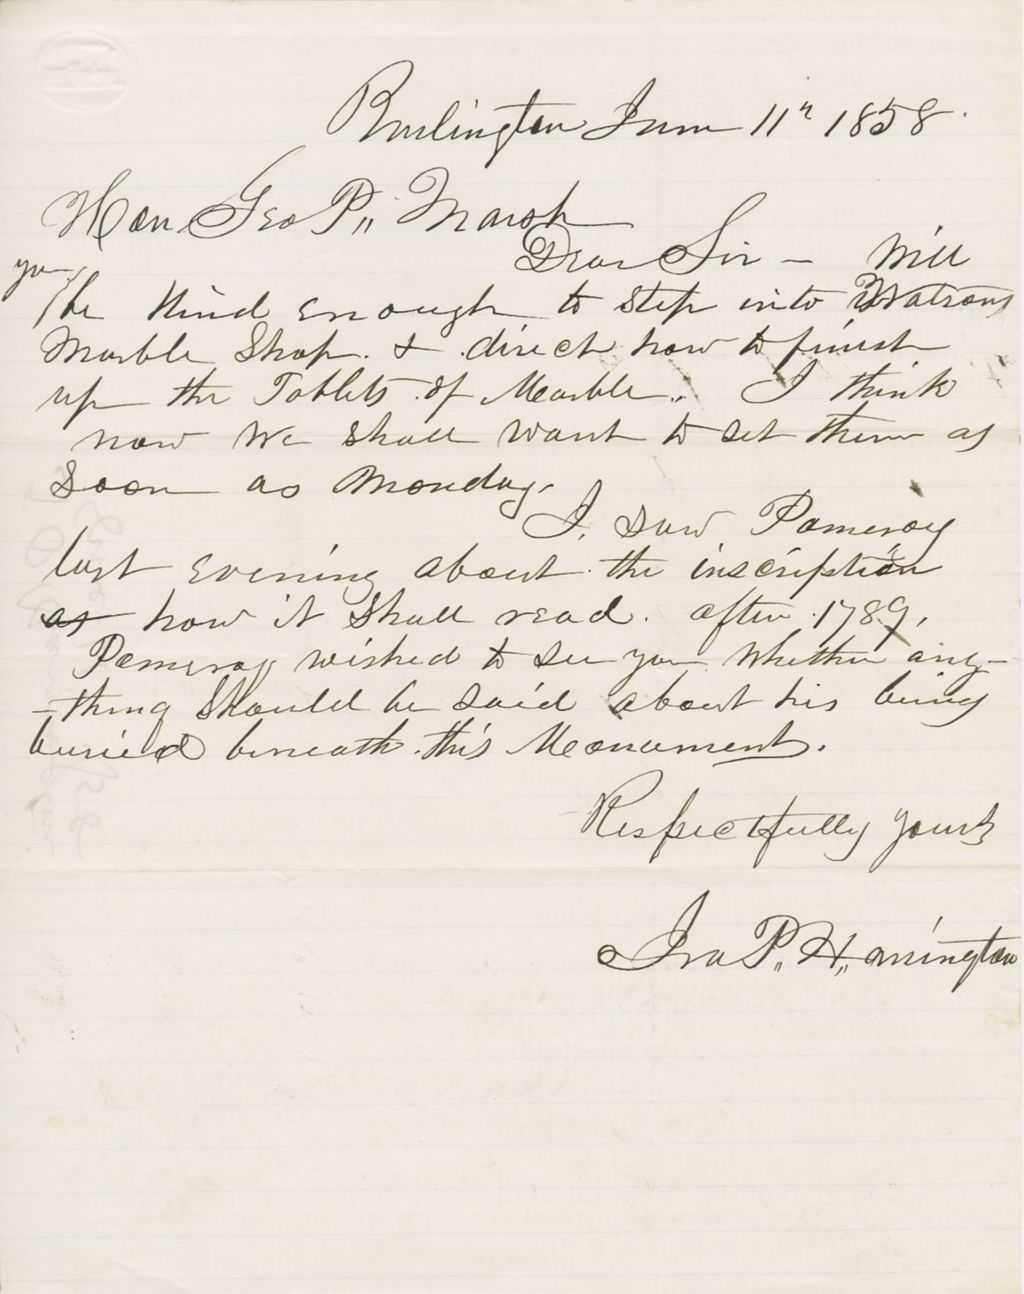 Burlington June 11th 1858.
Hon Geo P,, Marsh
Dear Sir - Will
you
be Kind Enough to step into Watsons
Marble Shop. & direct how to finish
up the Tablets of Marble. I think
now We shall want to set them as
Soon as Monday.
I, saw Pomeroy
last Evening about the inscription
as how it shall read. after 1789,
Pomeroy wished to see you Whether any-
-thing Should be said about his being
buried beneath this Monument.
Respectfully yours
Ira P,, H,,